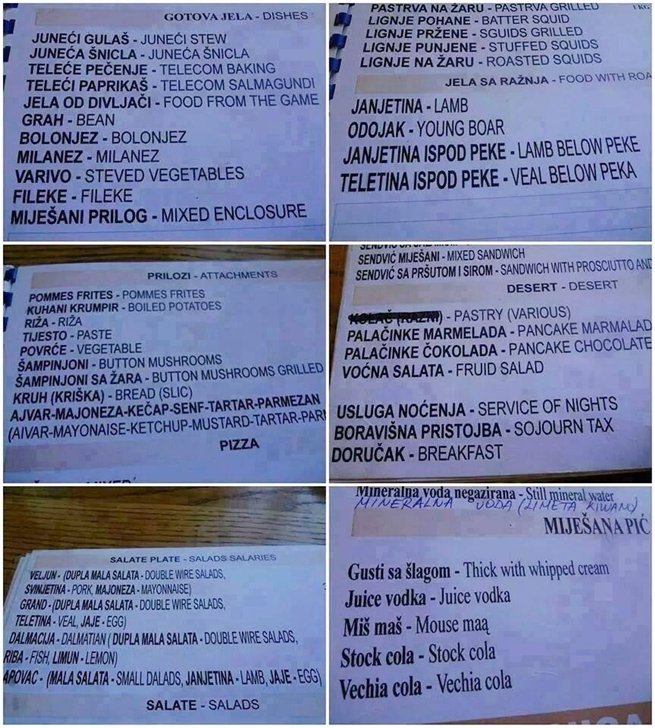 GOTOVA JELA - DISHES
JUNEĆI GULAŠ - JUNEĆI STEW
JUNEĆA ŠNICLA - JUNEĆA ŠNICLA
TELEĆE PEČENJE - TELECOM BAKING
TELEĆI PAPRIKAŠ - TELECOM SALMAGUNDI
JELA OD DIVLJAČI - FOOD FROM THE GAME
GRAH - BEAN
BOLONJEZ - BOLONJEZ
MILANEZ - MILANEZ
VARIVO - STEVED VEGETABLES
FILEKE - FILEKE
MIJEŠANI PRILOG - MIXED ENCLOSURE
PASTRVA NA ŽARU - PASTRVA GRILLED
LIGNJE POHANE - BATTER SQUID
LIGNJE PRŽENE - SGUIDS GRILLED
LIGNJE PUNJENE - STUFFED SQUIDS
LIGNJE NA ŽARU - ROASTED SQUIDS
JELA SA RAŽNJA - FOOD WITH ROA
JANJETINA - LAMB
ODOJAK - YOUNG BOAR
JANJETINA ISPOD PEKE - LAMB BELOW PEKE
TELETINA ISPOD PEKE - VEAL BELOW PEKA
PRILOZI - ATTACHMENTS
POMMES FRITES - POMMES FRITES
KUHANI KRUMPIR - BOILED POTATOES
RIŽA - RIŽA
TIJESTO - PASTE
POVRĆE - VEGETABLE
ŠAMPINJONI - BUTTON MUSHROOMS
ŠAMPINJONI SA ŽARA - BUTTON MUSHROOMS GRILLED
KRUH (KRIŠKA) - BREAD (SLIC)
AJVAR-MAJONEZA-KEČAP-SENF-TARTAR-PARMEZAN
(AIVAR-MAYONAISE-KETCHUP-MUSTARD-TARTAR-PAR
PIZZA
SENDVIČ MIJEŠANI - MIXED SANDWICH
SENDVIČ SA PRŠUTOM I SIROM - SANDWICH WITH PROSCIUTTO AND
DESERT - DESERT
KOLAČ (RAZNI) - PASTRY (VARIOUS)
PALAČINKE MARMELADA - PANCAKE MARMALAD
PALAČINKE ČOKOLADA - PANCAKE CHOCOLATE
VOĆNA SALATA - FRUID SALAD
USLUGA NOĆENJA - SERVICE OF NIGHTS
BORAVIŠNA PRISTOJBA - SOJOURN TAX
DORUČAK - BREAKFAST
SALATE PLATE - SALADS SALARIES
VELJUN - (DUPLA MALA SALATA - DOUBLE WIRE SALADS,
SVINJETINA - PORK, MAJONEZA - MAYONNAISE)
GRAND - (DUPLA MALA SALATA - DOUBLE WIRE SALADS,
TELETINA - VEAL, JAJE - EGG)
DALMACIJA - DALMATIAN ( DUPLA MALA SALATA - DOUBLE WIRE SALADS,
RIBA - FISH, LIMUN - LEMON)
AROVAC - (MALA SALATA - SMALL DALADS, JANJETINA - LAMB, JAJE - EGG)
SALATE - SALADS
Mineralna voda negazirana - Still mineral water
MINERALNA VODA (LIMETA KIWANO)
MIJEŠANA PIĆ
Gusti sa šlagom - Thick with whipped cream
Juice vodka - Juice vodka
Miš maš - Mouse maą
Stock cola - Stock cola
Vechia cola - Vechia cola